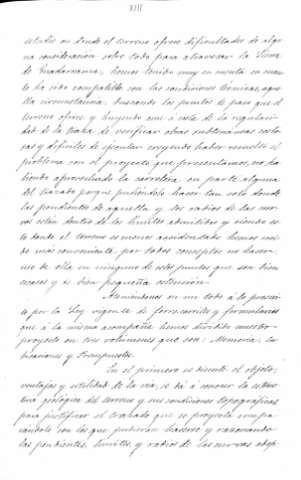 XIII
trata en donde el terreno ofrece dificultades de algu-
na consideración sobre todo para atravesar la Sierra
de Guadarrama; hemos tenido muy en cuenta en cuan-
to ha sido compatible con las condiciones técnicas, aque-
lla circunstancia, buscando los puntos de paso que el
terreno ofrece y huyendo que a costa de la regulari-
dad de la traza de verificar obras subterráneas costo-
sas y difíciles de ejecutar creyendo haber resuelto el
problema con el proyecto que presentamos, no ha-
biendo aprovechado la carretera en parte alguna
del trazado porque pudiéndolo hacer tan solo donde
las pendientes de aquella y los radios de las cur-
vas estan dentro de los límites admitidos y siendo es-
to donde el terreno es menos accidentado hemos creí-
do más conveniente por todos conceptos no hacer
uso de ella en ninguno de estos puntos que son bien
escasos y de bien pequeña extensión.
Ateniéndonos en un todo á lo prescri-
to por la Ley vigente de ferrocarriles y formularios
que á la misma acompaña hemos dividido nuestro
proyecto en tres volúmenes que son: Memoria, cu-
bicaciones y Presupuestos.
En el primero se detalla el objeto,
ventajas y utilidad de la vía, se dá á conocer la estruc-
tura geológica del terreno y sus condiciones topográficas,
para justificar el trazado que se proyecta compa-
rándole con los que pudieran hacerse y razonando
las pendientes, límites, y radios de las curvas adop-